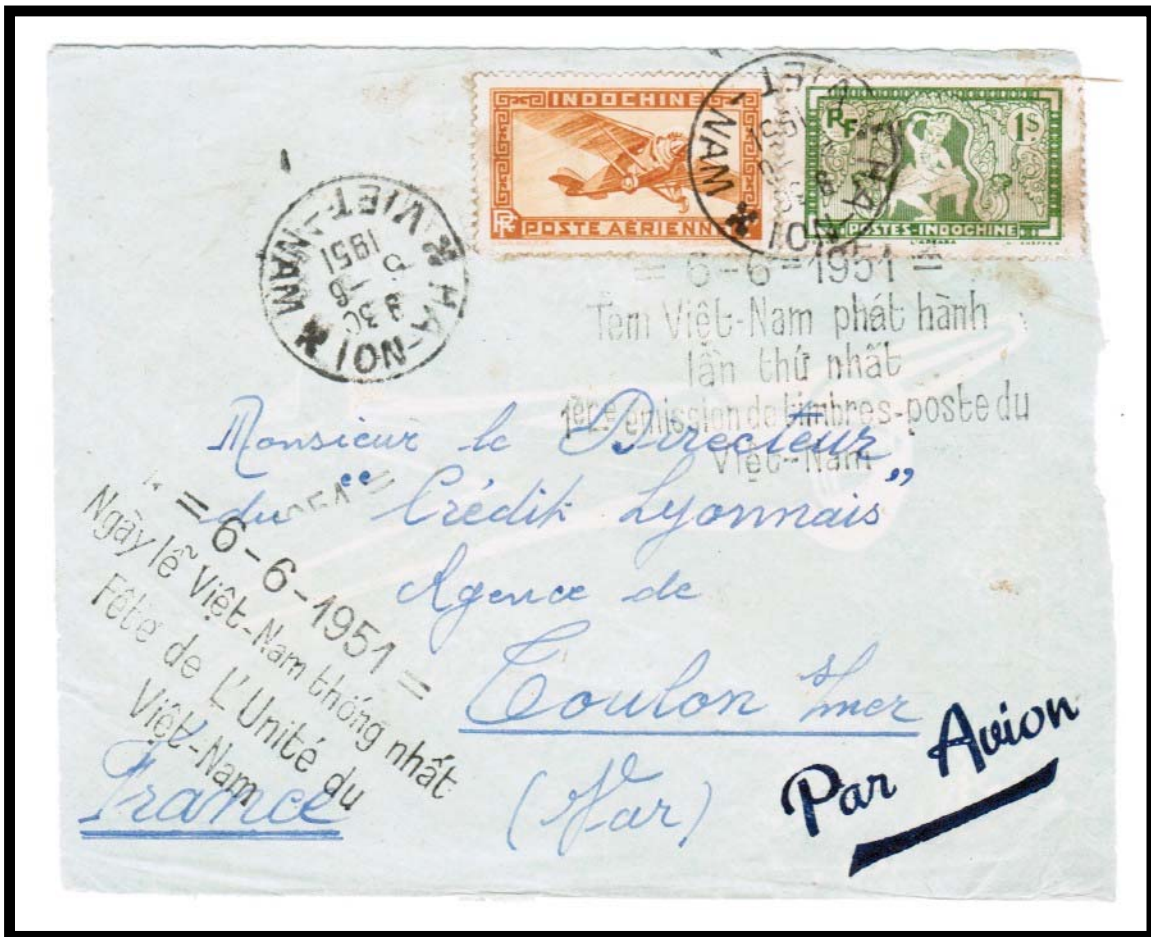 INDOCHINE
RF
POSTE AÉRIENNE
RF
1$
POSTES-INDOCHINE
L'APSARA
HA-NOI
VIET-NAM
HA-NOI
VIET-NAM
9 30
6-6
1951
= 6-6-1951 =
Tem Việt-Nam phát hành
lần thứ nhất
1ère émission de timbres-poste du
Việt-Nam
Monsieur le Directeur
du "Crédit Lyonnais"
Agence de
Toulon s/mer
(Var)
France
1951 =
= 6-6-1951 =
Ngày lễ Việt-Nam thống nhất
Fête de L'Unité du
Việt-Nam
Par Avion